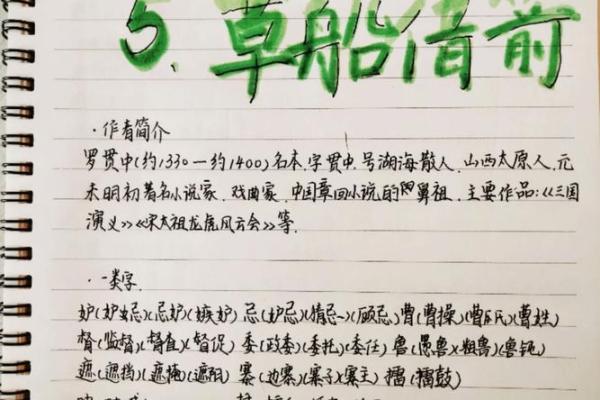 5.草船借箭
·作者简介
罗贯中(约1330—约1400)名本,字贯中,号湖海散人,山西太原人,元
末明初著名小说家、戏曲家,中国章回小说的鼻祖,主要作品:《三国
演义》《宋太祖龙虎风云会》等.
·一类字.
妒(妒忌)(忌妒)(嫉妒) 忌(妒忌)(猜忌)(顾忌) 曹(曹操)(曹氏)(曹姓)
督(监督)(督查)(督促) 委(政委)(委托)(委任) 鲁(愚鲁)(粗鲁)(鲁钝)
遮(遮挡)(遮掩)(遮阳) 寨(边寨)(寨子)(寨主) 擂(擂鼓)